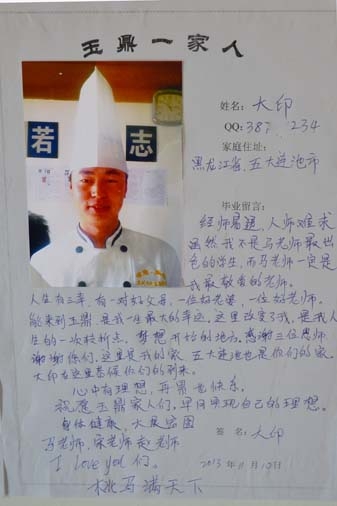 玉鼎一家人
若 志
姓名: 大印
QQ: 387 234
家庭住址:
黑龙江省,五大连池市
毕业留言:
经师易遇,人师难求
虽然我不是马老师最出
色的学生,而马老师一定是
我最敬爱的老师。
人生有三幸,有一对好父母,一位好老婆,一位好老师。
能来到玉鼎是我一生最大的幸运,这里改变了我,是我人
生的一次转折点,梦想开始的地方,感谢三位恩师
谢谢你们,这里是我的家,五大连池也是你们的家。
大印在这里恭候你们的到来。
心中有理想,再累也快乐。
祝愿玉鼎家人们,早日实现自己的理想。
身体健康,大展宏图
马老师,宋老师 老师
签名: 大印
I love you们。
2013年11月10日
桃马满天下